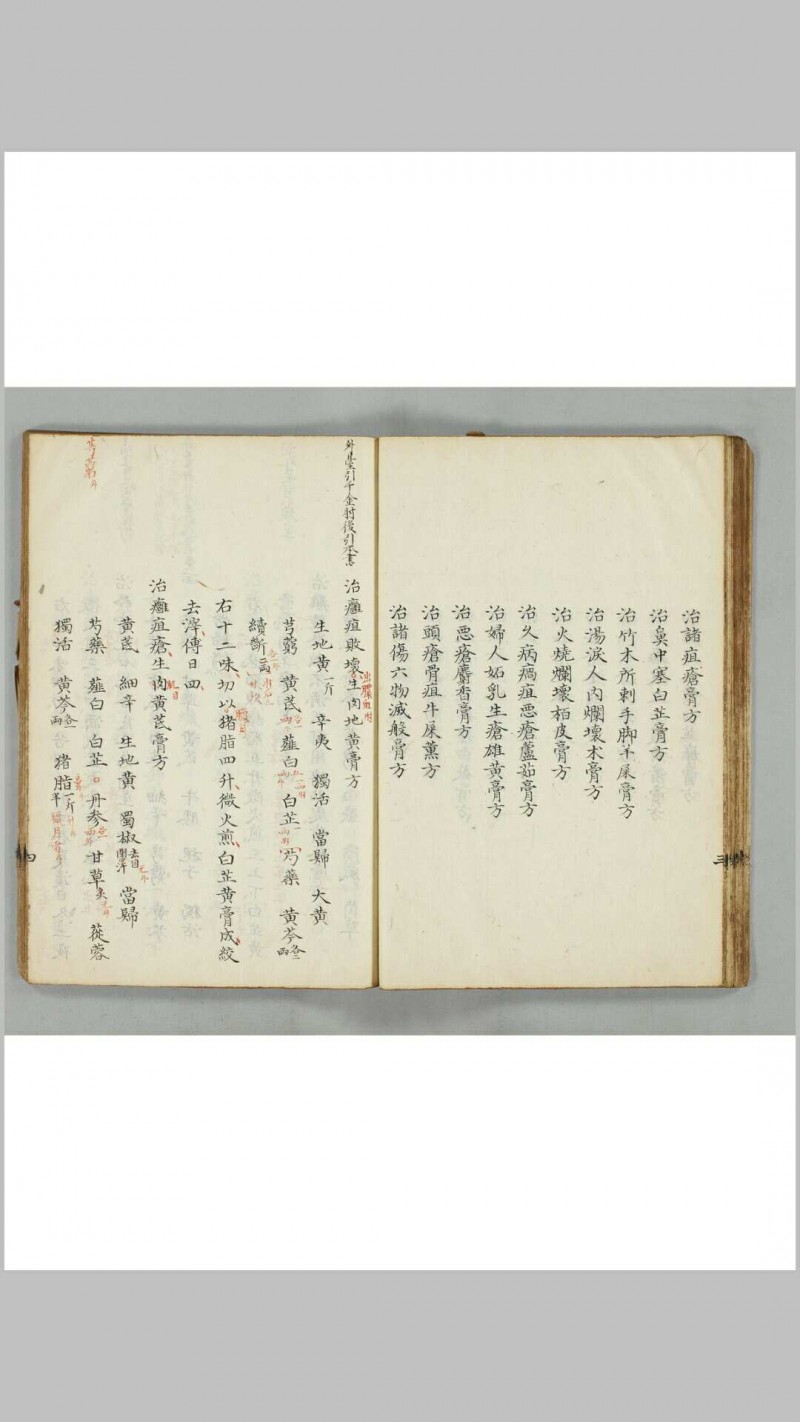 治諸疽瘡膏方
治鼻中塞白芷膏方
治竹木所刺手脚羊屎膏方
治湯淚人肉爛壞术膏方
治火燒爛壞栢皮膏方
治久病瘑疽悪瘡蘆茹膏方
治婦人妬乳生瘡雄黄膏方
治悪瘡麝香膏方
治頭瘡骨疽牛屎薫方
治諸傷六物滅般膏方
三
外臺引千金肘後引本書
治癰疽敗壞生肉地黄膏方
生地黄一斤 辛夷 獨活 當歸 大黄
芎藭 黄芪 薤白 白芷 芍藥 黄芩各二兩
續斷
右十二味切以猪脂四升微火煎白芷黄膏成絞
去滓傅日四
治癰疽瘡生肉黄芪膏方
黄芪 細辛 生地黄 蜀椒去目 當歸
芍藥 薤白 白芷 丹參 甘草 蓯蓉
獨活 黄芩各一兩 猪脂一斤半
四